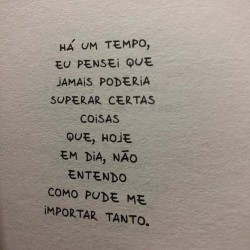 HÁ UM TEMPO,
EU PENSEI QUE
JAMAIS PODERIA
SUPERAR CERTAS
COISAS
QUE, HOJE
EM DIA, NÃO
ENTENDO
COMO PUDE ME
IMPORTAR TANTO.